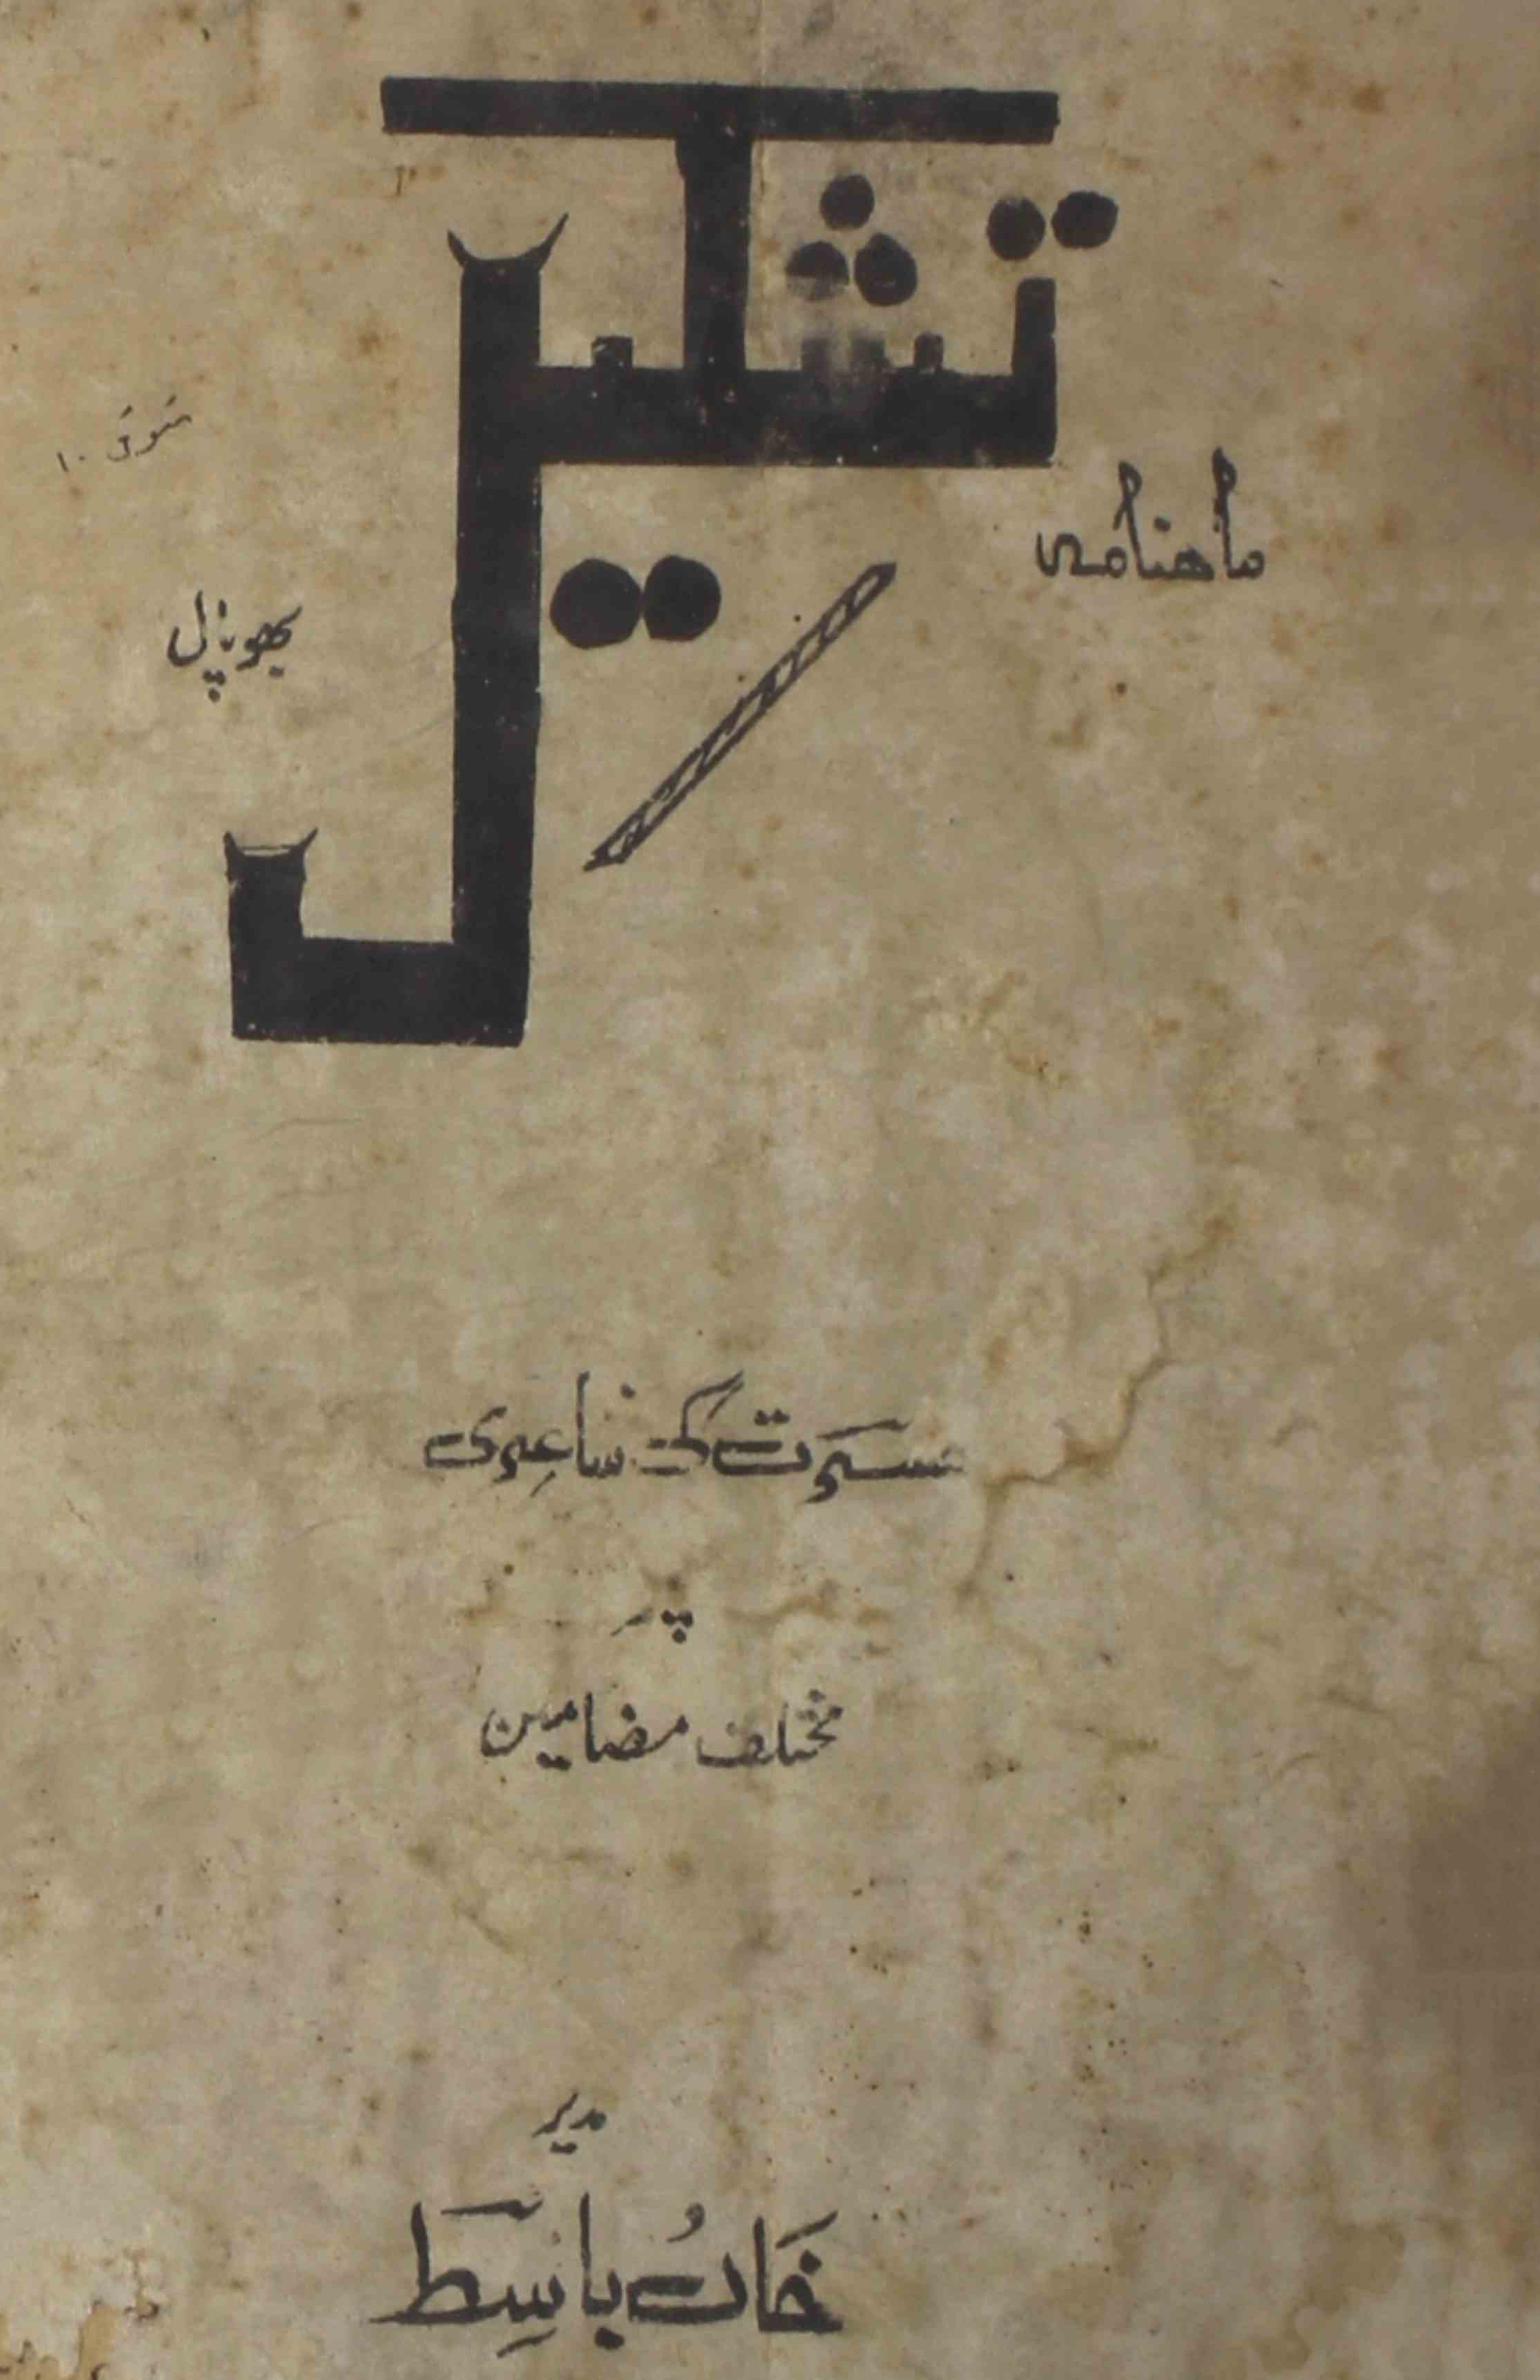 تشکیل
ماھنامہ
بھوپال
کی شاعری
پر
مختلف مضامین
مدیر
خان باسط